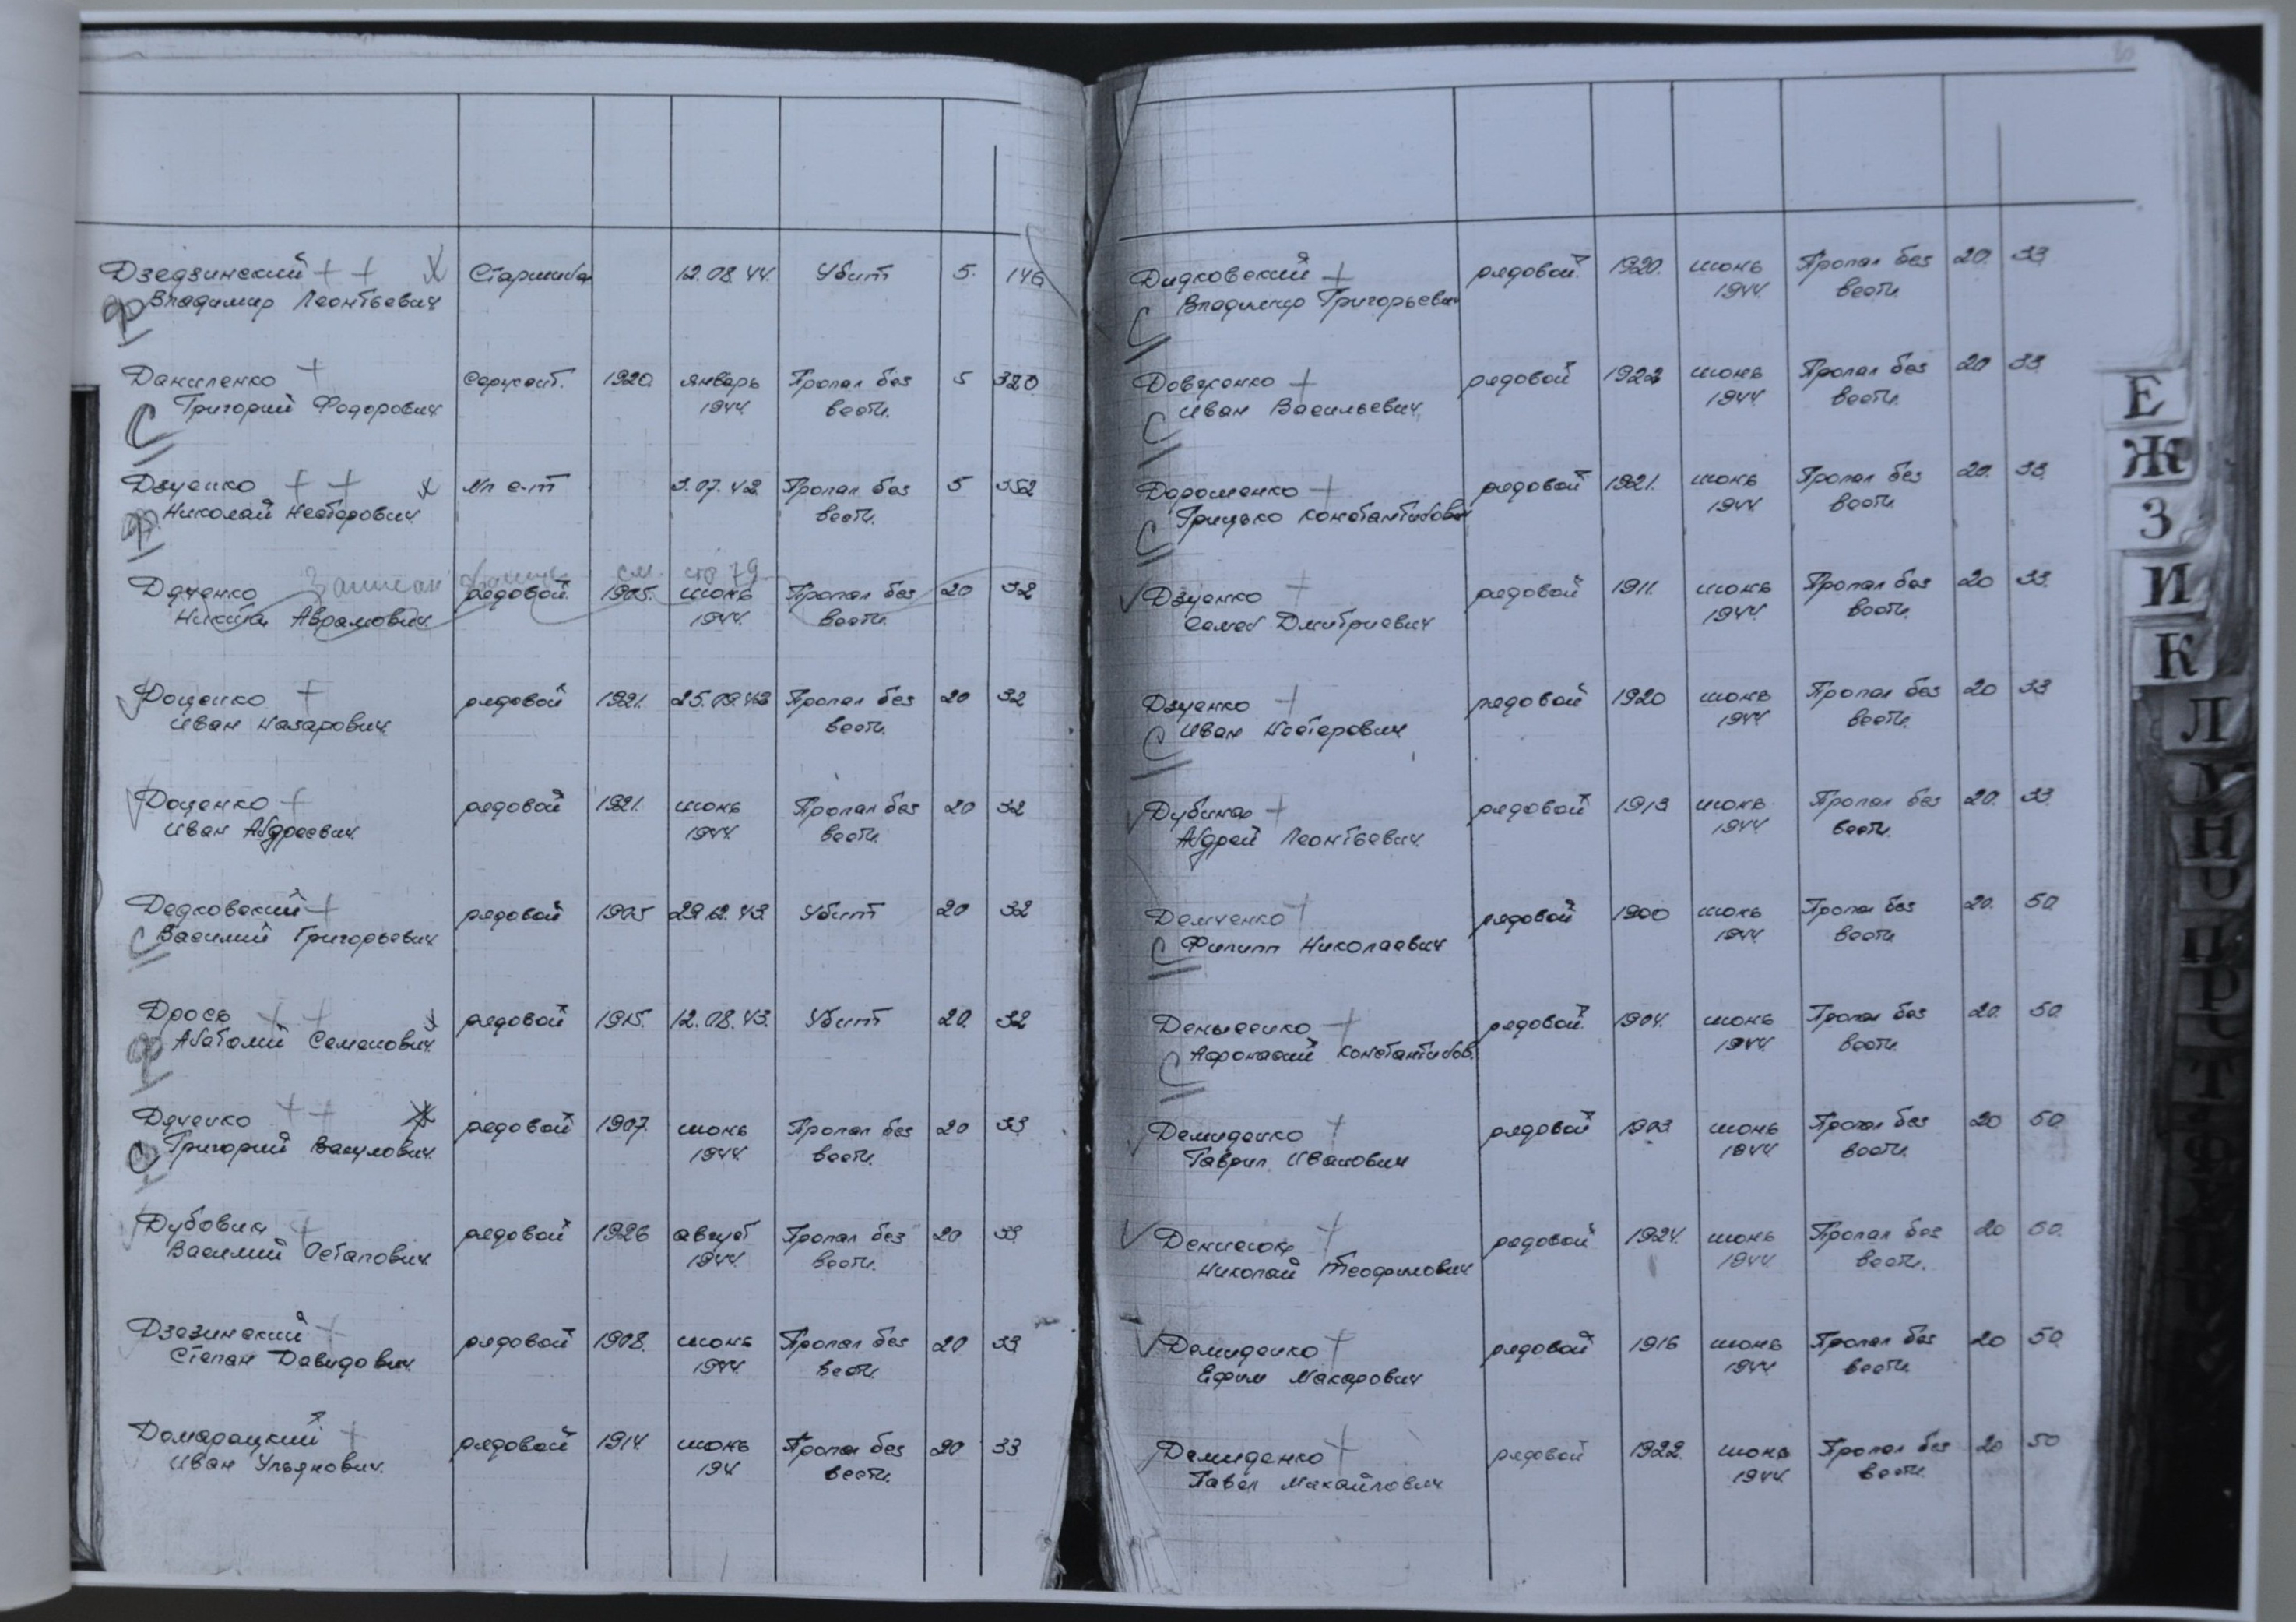 Дзедзинский + + Х Старшина 12.08.44. Убит 5. 146
Ф Владимир Леонтьевич
Даниленко + Сержант. 1920 январь Пропал без 5 320
С Григорий Федорович 1944 вести.
Дзценко + + Х Мл с-т 3.07.42 Пропал без 5 352
Ф Николай Несторович вести.
Записан см. стр 79
Дяченко рядовой 1905. июнь Пропал без 20 32
Никита Аврамович 1944. вести.
Доценко + рядовой 1921. 25.09.43 Пропал без 20 32
Иван Назарович вести.
Доценко + рядовой 1921. июнь Пропал без 20 32
Иван Андреевич 1944. вести.
Дедковский + рядовой 1905 29.12.43. Убит 20 32
С Василий Григорьевич
Дрось + + х рядовой 1915. 12.08.43. Убит 20. 32
Ф Анатолий Семенович
Дяченко + + Х рядовой 1907. июнь Пропал без 20 33
С Григорий Васулович 1944. вести.
Дубовик + рядовой 1926 август Пропал без 20 33
Василий Остапович 1944. вести.
Дзезинский + рядовой 1908. июнь Пропал без 20 33
Степан Давидович 1944. вести.
Домарацкий + рядовой 1914 июнь Пропал без 20 33
Иван Ульянович. 194 вести.
80
Дидковский + рядовой. 1920. июнь Пропал без 20. 33
С Владимир Григорьевич 1944. вести.
Довженко + рядовой 1922 июнь Пропал без 20 33.
С Иван Васильевич 1944. вести.
Дорошенко + рядовой 1921. июнь Пропал без 20. 33
С Грицько Константинович 1944 вести.
Дзценко + рядовой 1911. июнь Пропал без 20 33.
Семен Дмитриевич 1944. вести.
Дзценко + рядовой 1920 июнь Пропал без 20 33
С Иван Нестерович 1944. вести.
Дубина + рядовой 1913 июнь Пропал без 20. 33.
Андрей Леонтьевич 1944. вести.
Демченко + рядовой 1900 июнь Пропал без 20. 50
С Филипп Николаевич 1944 вести
Денысенко + рядовой. 1904. июнь Пропал без 20. 50
С Афонасий Константинов. 1944 вести.
Демиденко + рядовой 1903 июнь Пропал без 20 50
Гаврил Иванович 1944 вести.
Денисюк + рядовой 1924. июнь Пропал без 20 50.
Николай Теофилович 1944 вести.
Демиденко + рядовой 1916 июнь Пропал без 20 50
Ефим Макарович 1944. вести.
Демиденко + рядовой 1922. июнь Пропал без 20 50
Павел Михайлович 1944. вести.
Е
Ж
З
И
К
Л
М
Н
О
П
Р
С
Т